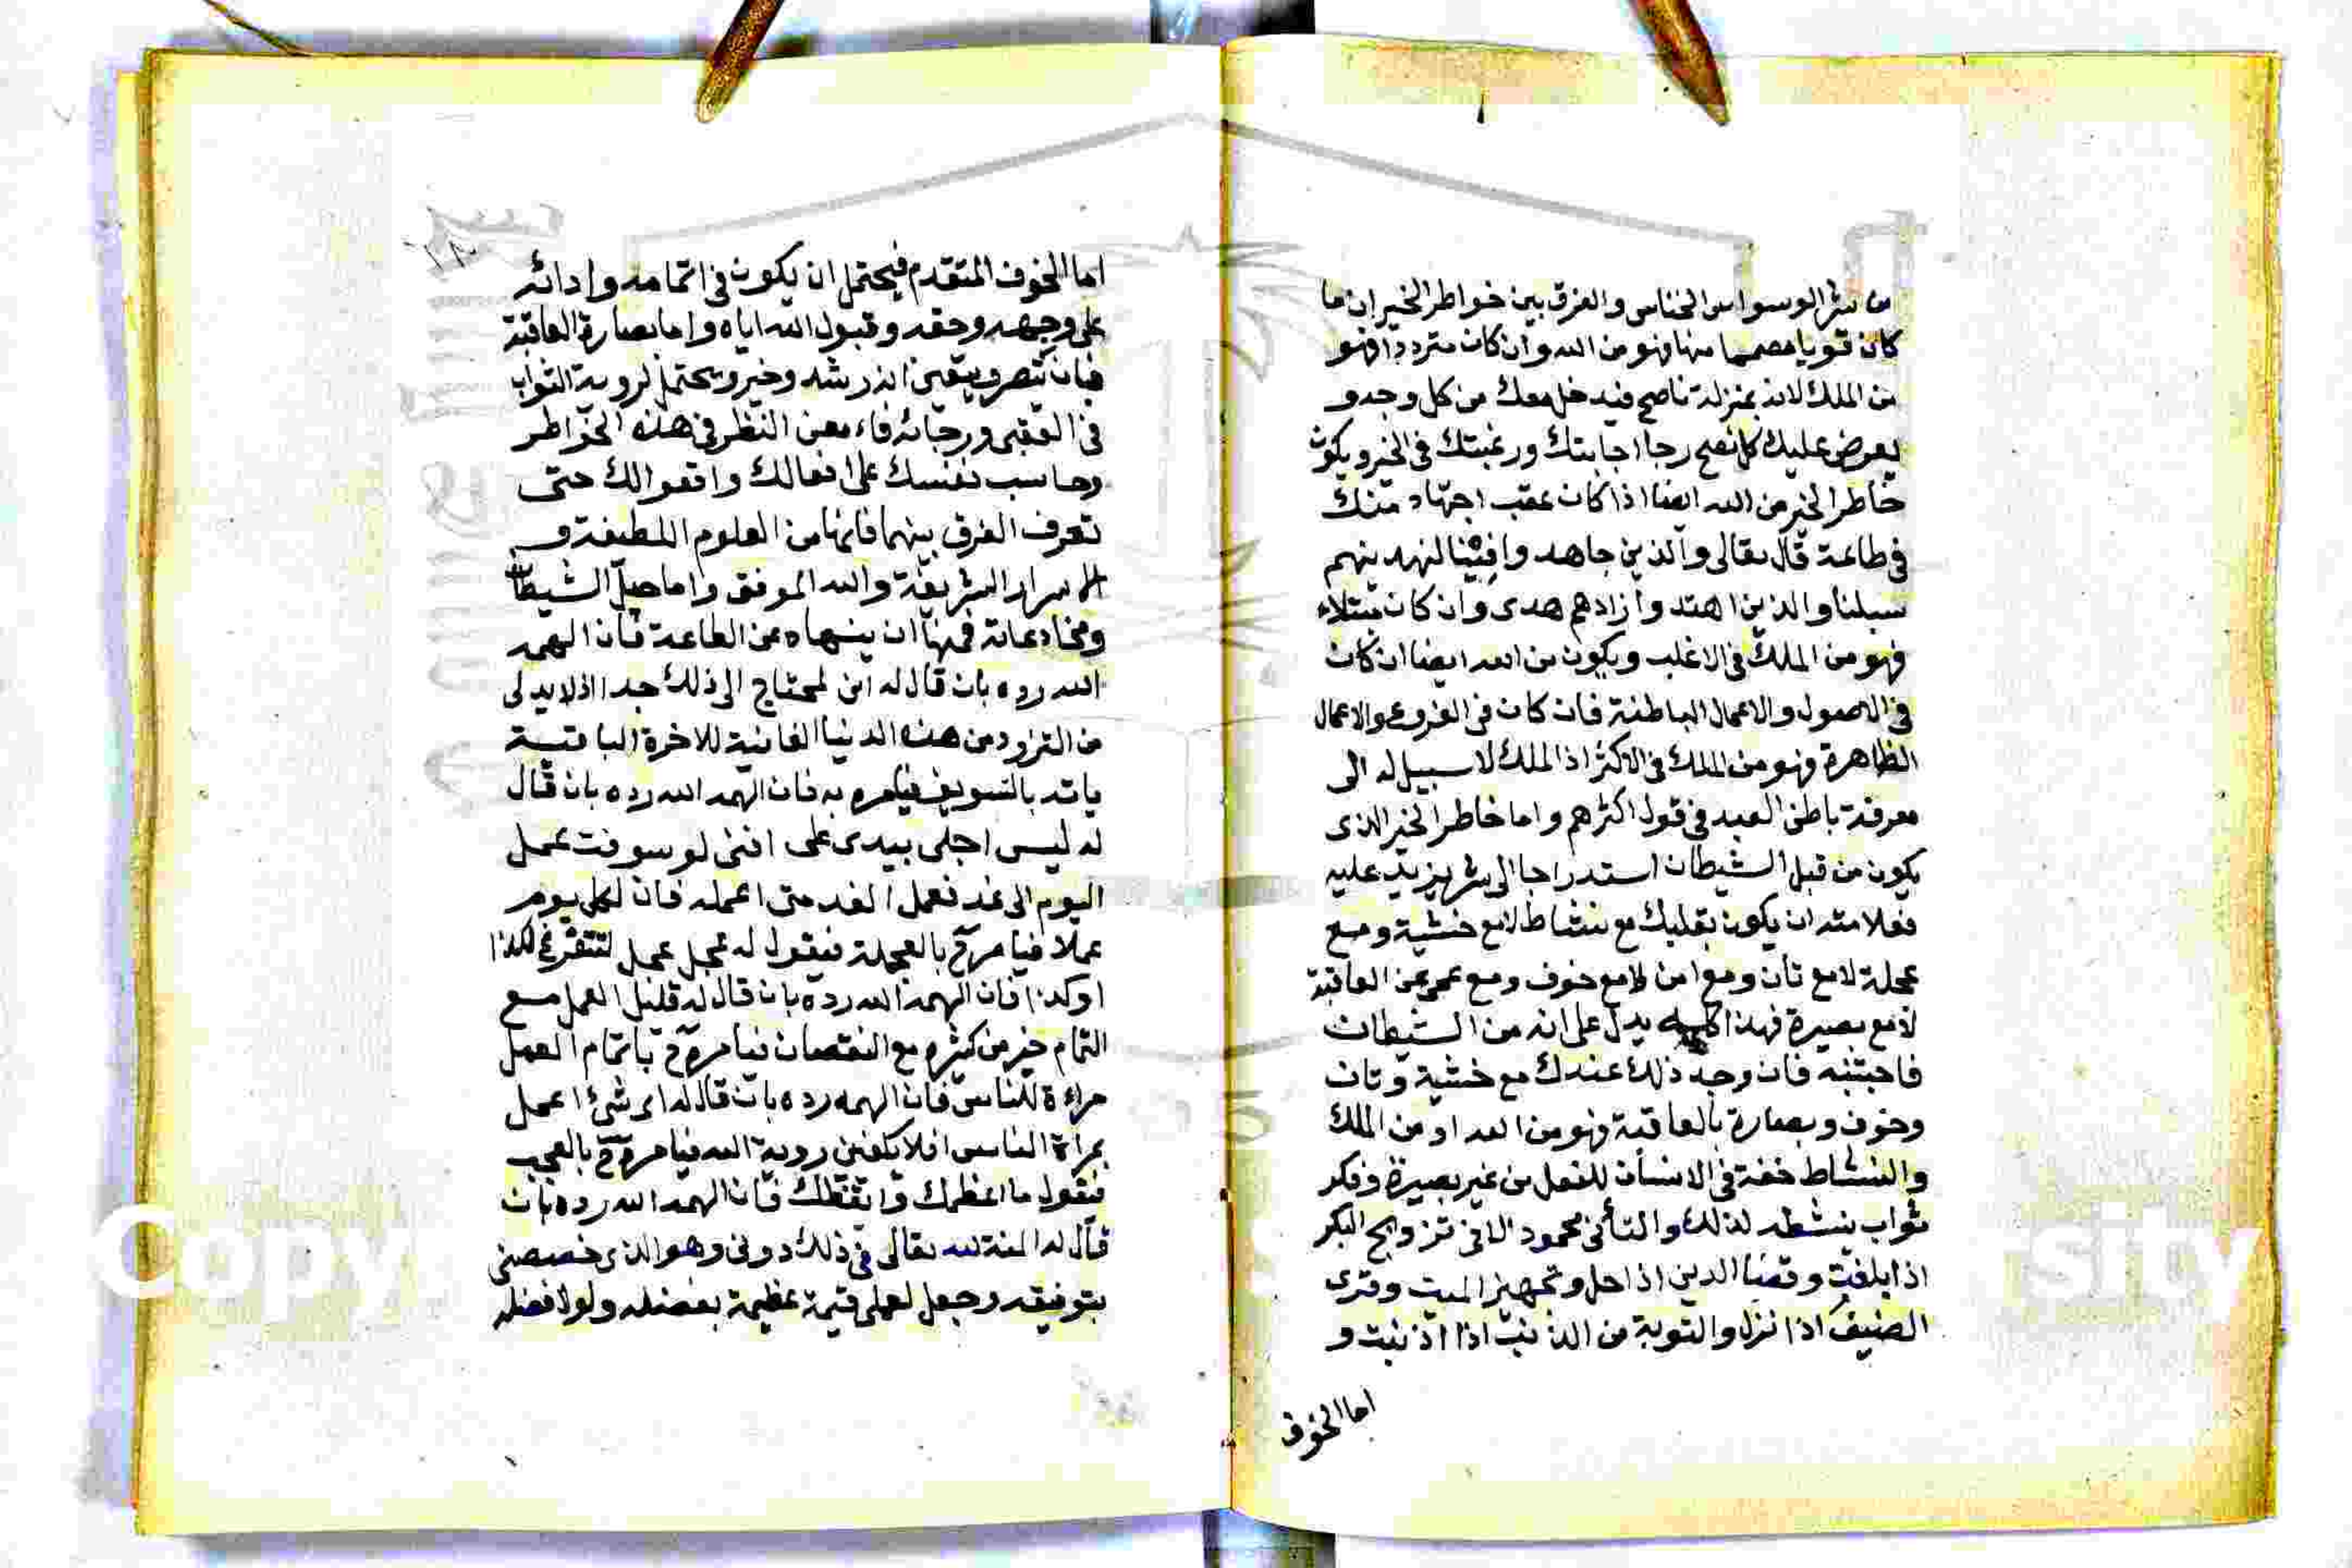 من شر الوسواس الخناس والفرق بين خواطر الخير ان ما
كان قويا مصمما منها فهو من الله وان كان مترددا فهو
من الملك لانه بمنزلة ناصح فيدخل معك من كل وجه و
يعرض عليك كل نصح رجا اجابتك ورغبتك في الخير ويكون
خاطر الخير من الله ايضا اذا كان عقب اجتهاد منك
في طاعة قال تعالى والذين جاهدوا فينا لنهدينهم
سبلنا والذين اهتدوا زادهم هدى وان كان مبتلاء
فهو من الملك في الاغلب ويكون من الله ايضا ان كان
في الاصول والاعمال الباطنة فان كان في الفروع والاعمال
الظاهرة فهو من الملك في الاكثر اذ الملك لا سبيل له الى
معرفة باطن العبد في قول اكثرهم واما خاطر الخير الذى
يكون من قبل الشيطان استدراجا الى شر يزيد عليه
فعلامته ان يكون بقلبك مع نشاط لامع خشية ومع
عجلة لامع تان ومع امن لامع خوف ومع عمى عن العاقبة
لامع بصيرة فهذا كله يدل على انه من الشيطان
فاجتنبه فان وجد ذلك عندك مع خشية وتان
وخوف وبصارة بالعاقبة فهو من الله او من الملك
والنشاط خفة في الانسان للفعل من غير بصيرة وذكر
ثواب ينشطه لذلك والتأنى محمود الا في تزويج البكر
اذا بلغت وقضا الدين اذا حل وتجهيز الميت وقرى
الضيف اذا نزل والتوبة من الذنب اذا اذنبت و
اما الخوف
اما الخوف المتقدم فيحتمل ان يكون في اتمامه وادائه
على وجهه وحقه وقبول الله اياه واما بصارة العاقبة
فبان تبصر ويتقين انه رشد وخير ويحتمل لروية الثواب
في العقبى ورجائه فامعن النظر في هذه الخواطر
وحاسب نفسك على افعالك واقوالك حتى
تعرف الفرق بينهما فانها من العلوم اللطيفة و
الاسرار الشريفة والله الموفق واما حيل الشيطان
ومخادعاته فمنها ان ينهاه عن الطاعة فان الهمه
الله رده بان قال له انى لمحتاج الى ذلك جدا اذ لا بد لى
من التزود من هذه الدنيا الفانية للاخرة الباقية
ياته بالتسويف فيامره به فان الهمه الله رده بان قال
له ليس اجلى بيدى على اننى لو سوفت عمل
اليوم الى غد فعمل الغد متى اعمله فان لكل يوم
عملا فيامره ح بالعجلة فيقول له عجل عجل لتتفرغ لكذا
او كذا فان الهمه الله رده بان قال له قليل العمل مع
التمام خير من كثيره مع النقصان فيامره ح باتمام العمل
مراءة للناس فان الهمه رده بان قال له اى شئ اعمل
بمراة الناس افلا يكفينى روية الله فيامره ح بالعجب
فيقول ما اعظمك وايقظك فان الهمه الله رده بان
قال له المنة لله تعالى في ذلك دونى وهو الذى خصصنى
بتوفيقه وجعل لعملى قيمة عظيمة بفضله ولولا فضله